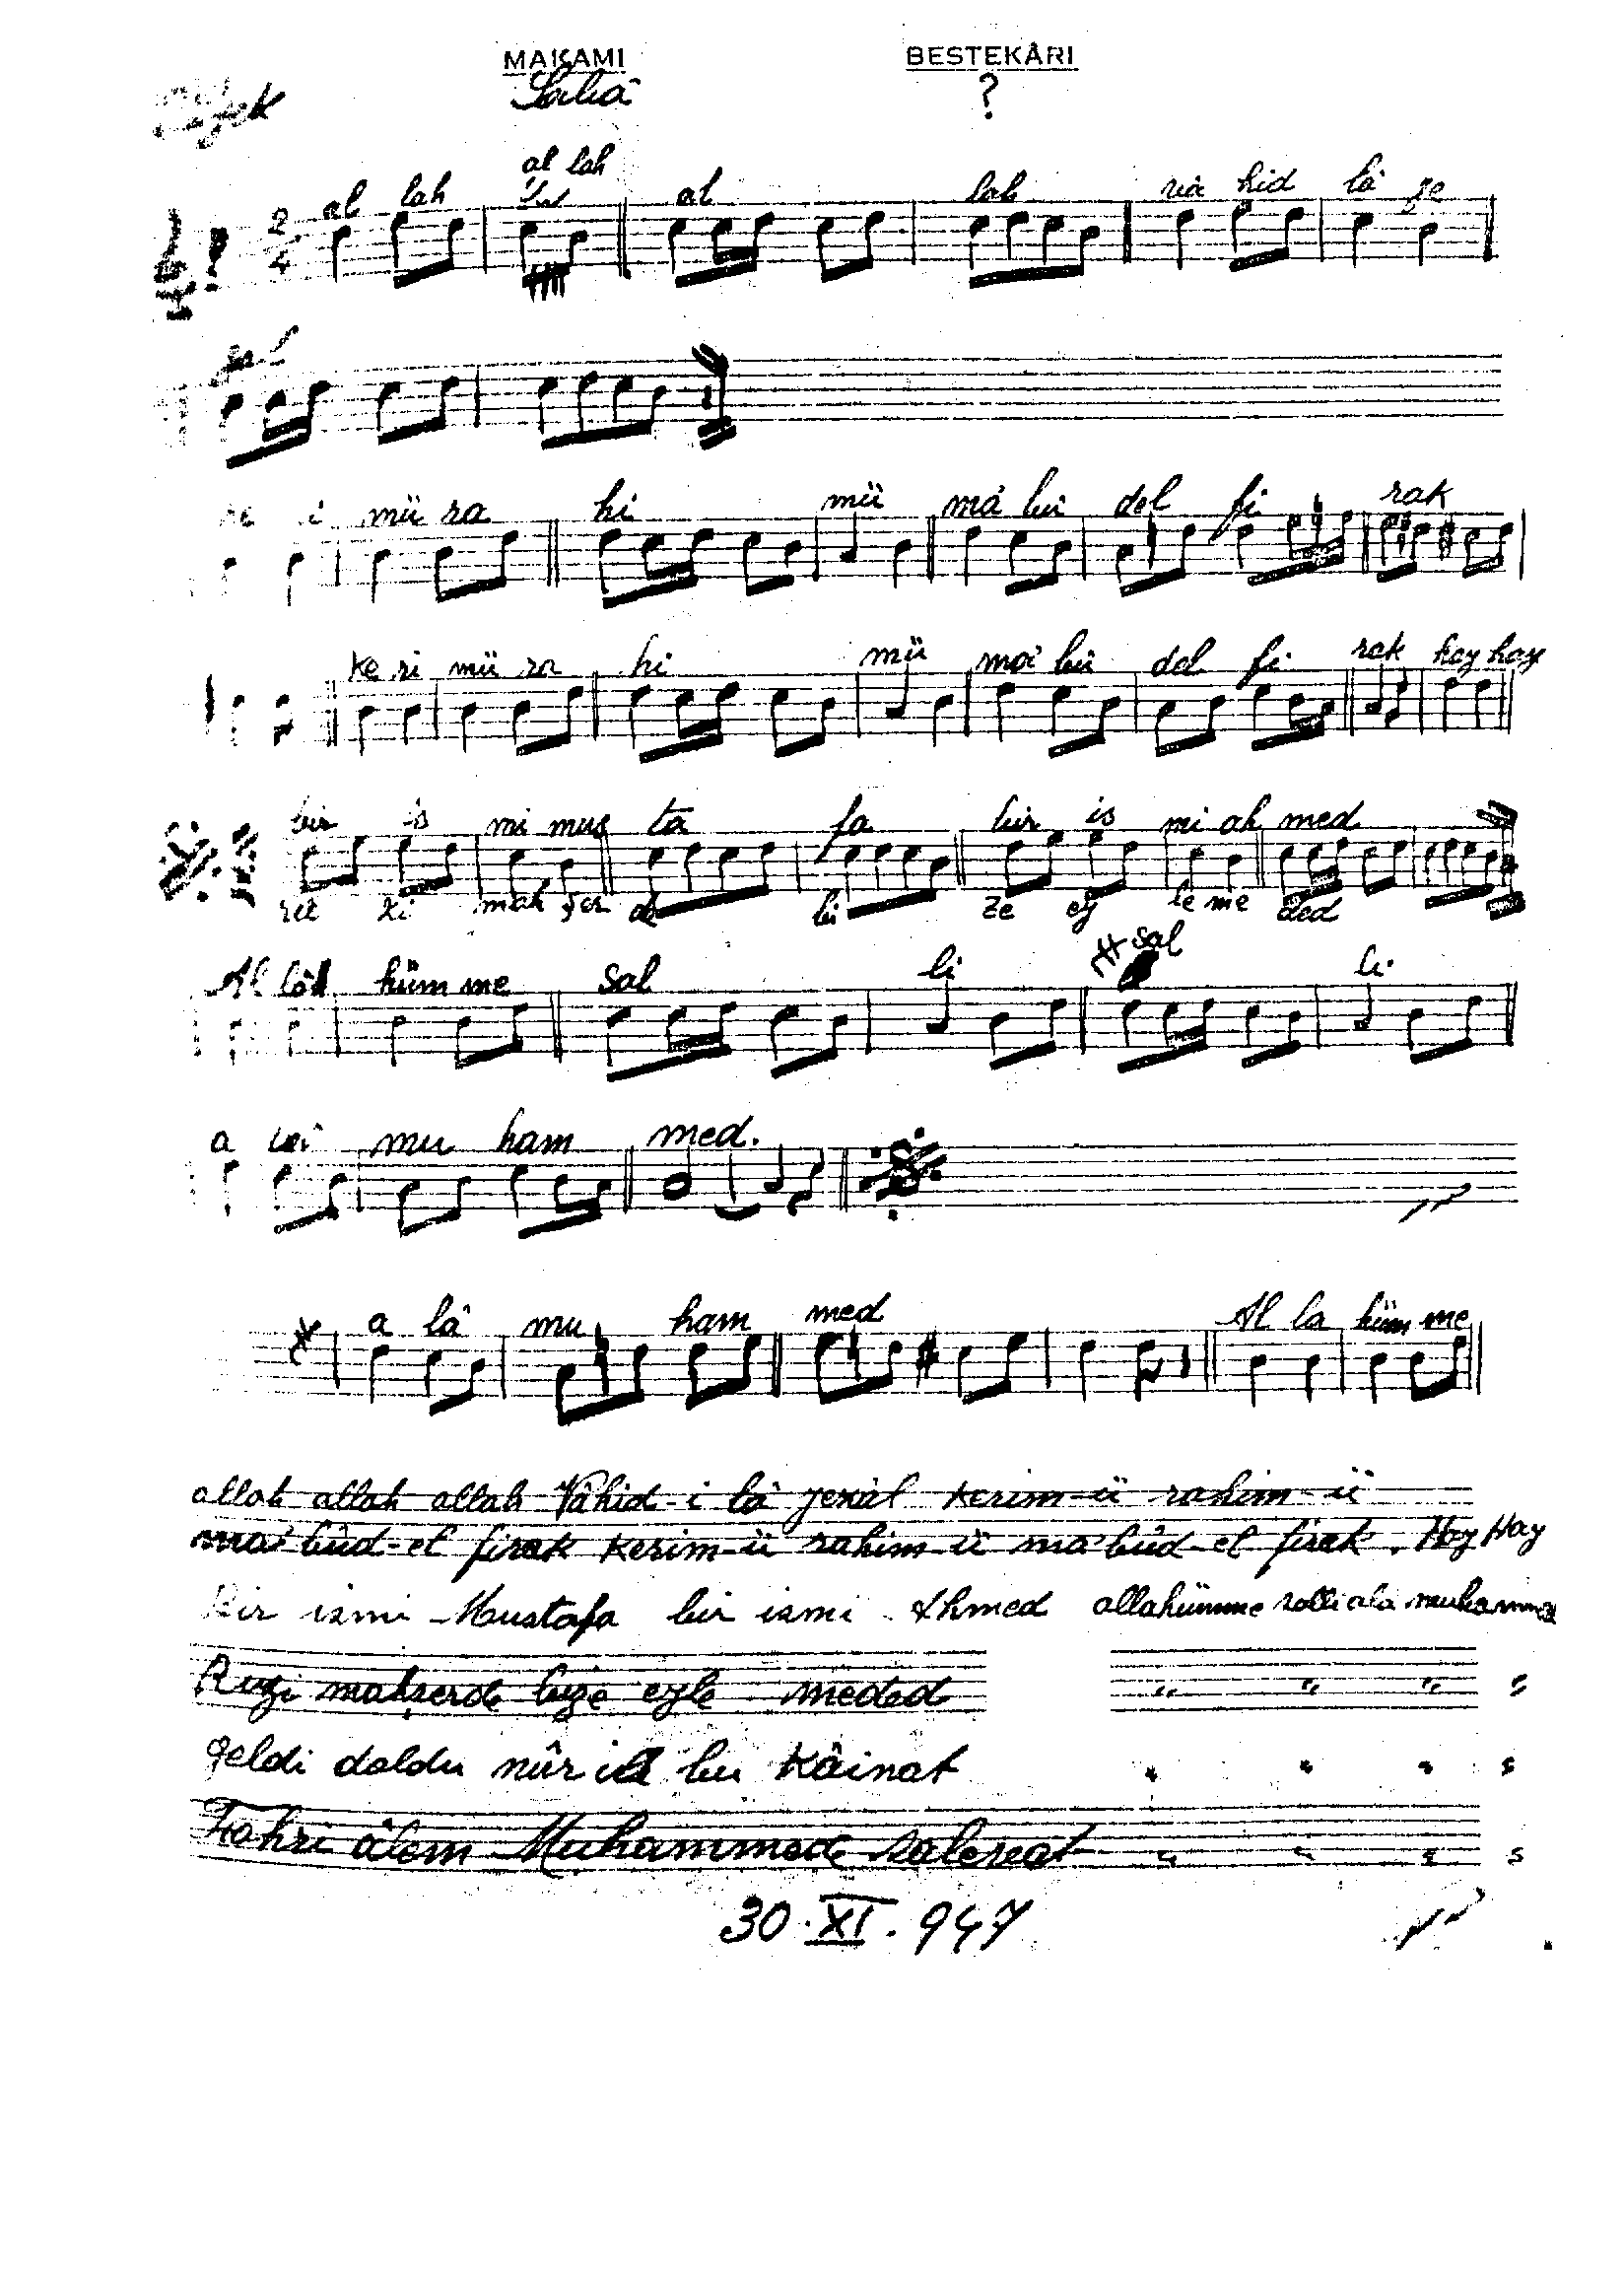 MAKAMI BESTEKÂRI
Sabâ ?
al lah
al lah al lah vâ hid lâ ye
2
4
zal
mü ra hi mü mâ bû del fi rak
ke ri mü ra hi mü mâ bû del fi rak hay hay
bir is mi mus ta fa bir is mi ah med
ru zi mah şer de bi ze ey le me ded
sal
Al lâh hüm me sal li li
a lâ mu ham med.
a lâ mu ham med Al la hüm me
allah allah allah Vâhid-i lâ yezâl Kerim-ü rahim-ü
ma'bûd-el firak Kerim-ü rahim-ü ma'bûd-el firak. Hay Hay
Bir ismi Mustafa bir ismi Ahmed allahümme salli alâ muhammed
Ruzi mahşerde bize eyle meded " " " "
Geldi doldu nûr ile bu Kâinat " " " "
Fahri âlem Muhammede salevat " " " "
30.XI.947